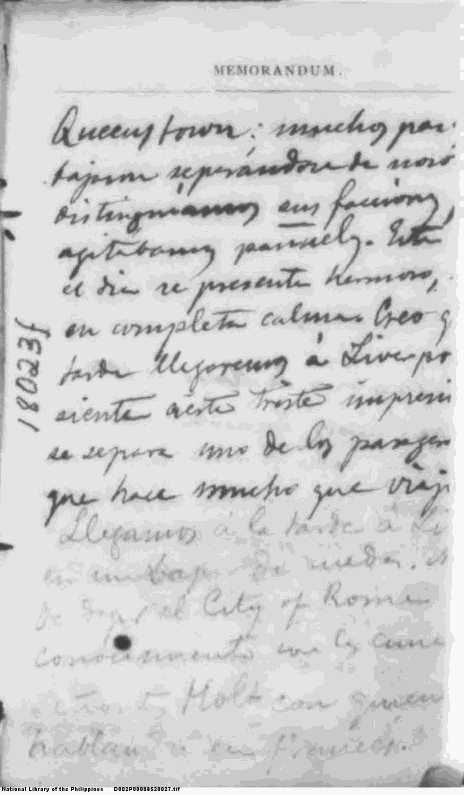 MEMORANDUM.
Queenstown: muchos pa
bajaron separándose de noso
distinguíamos sus facciones,
agitabamos pañuelos. Este
el dia se presenta hermoso,
en completa calma. Creo q
tarde llegaremos à Liverpo
siento cierta triste impresi
se separa uno de los pasager
que hace mucho que viaj
Llegamos á la tarde à Li
en un de ruedas.
De el City of Rome
conocimiento con
Holt con quien
hablan en Frances.
18023f
National Library of the Philippines D002P00000520027.tif